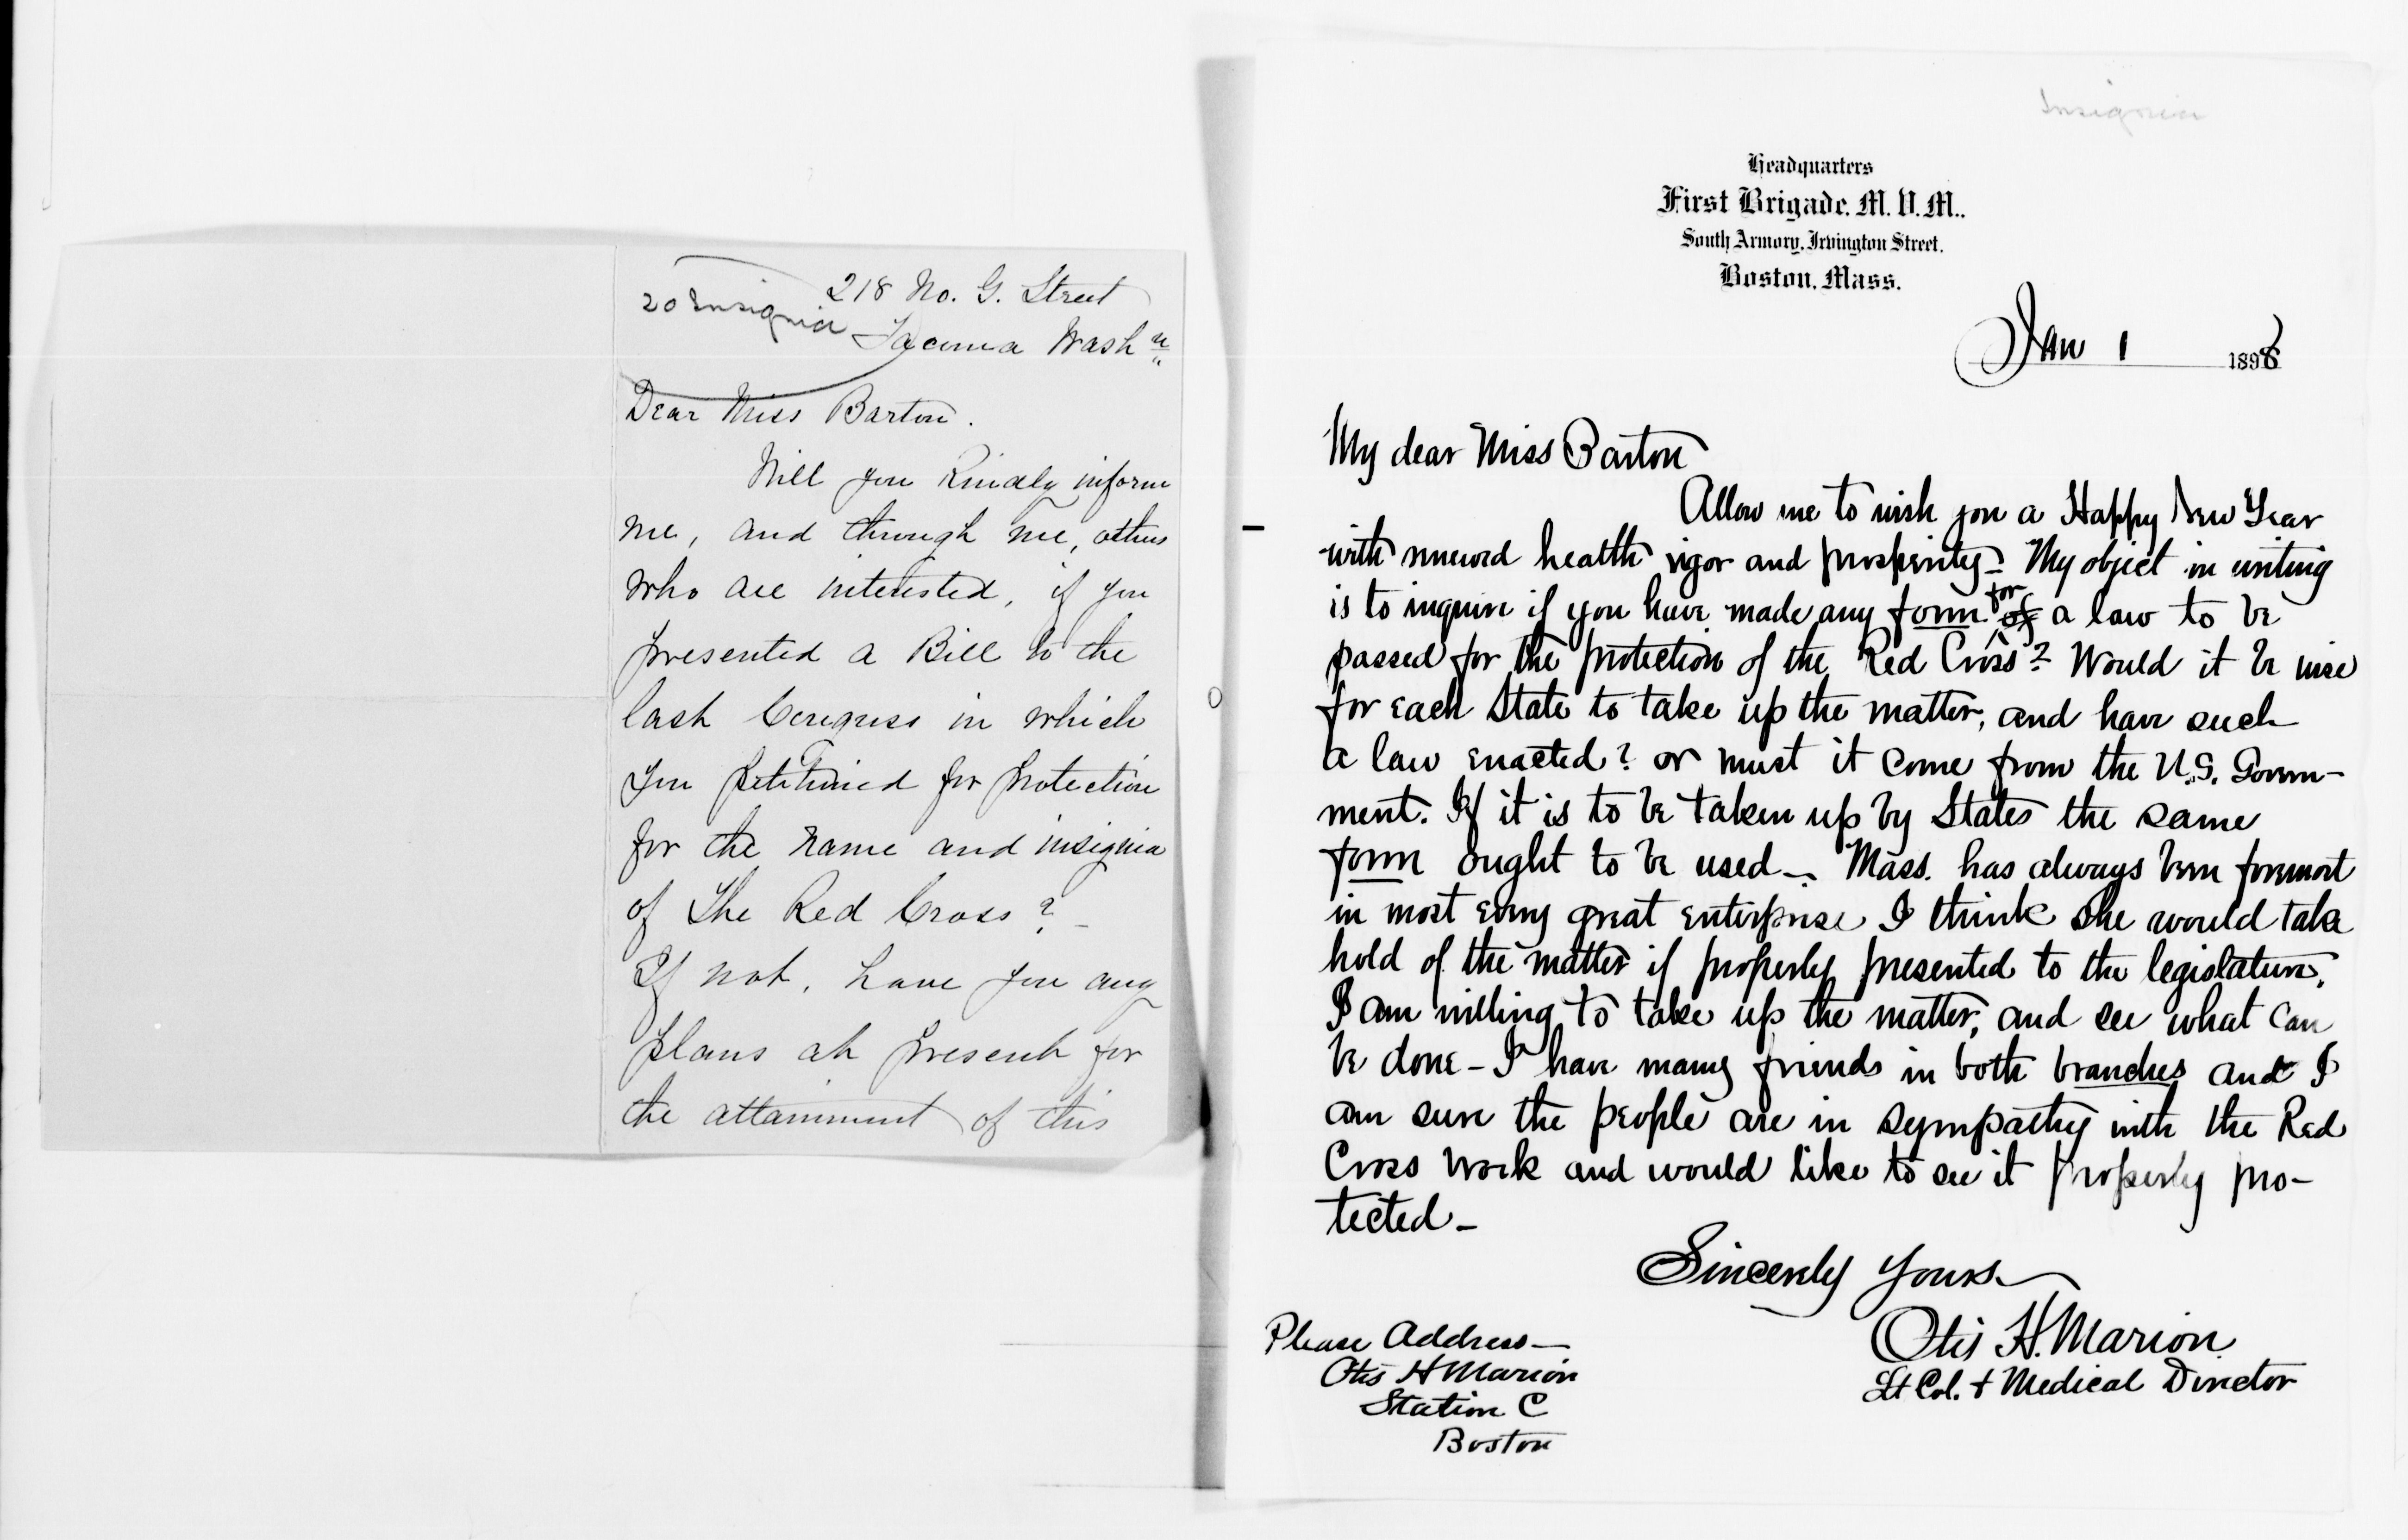 218 No. G. Street
20 Insignia
Tacoma Wash n
Dear Miss Barton.
Will you kindly inform
me, and through me, others
who are interested, if you
presented a Bill to the
last Congress in which
you petitioned for protection
for the name and insignia
of The Red Cross?
If not, have you any
plans at present for
the attainment of this
Insignia
Headquarters
First Brigade, M. V. M.,
South Armory, Irvington Street.
Boston, Mass.
Jan 1 1898
My dear Miss Barton
Allow me to wish you a Happy New Year
with renewed health vigor and prosperity - My object in writing
is to inquire if you have made any form for of a law to be
passed for the protection of the Red Cross? Would it be wise
for each State to take up the matter, and have such
a law enacted? or must it come from the U.S. Govern-
ment. If it is to be taken up by States the same
form ought to be used - Mass. has always been foremost
in most every great enterprise I think she would take
hold of the matter if properly presented to the legislature.
I am willing to take up the matter, and see what can
be done - I have many friends in both branches and I
am sure the people are in sympathy with the Red
Cross work and would like to see it properly pro-
tected -
Sincerely Yours
Otis H. Marion
Lt Col. + Medical Director
Please Address -
Otis H Marion
Station C
Boston